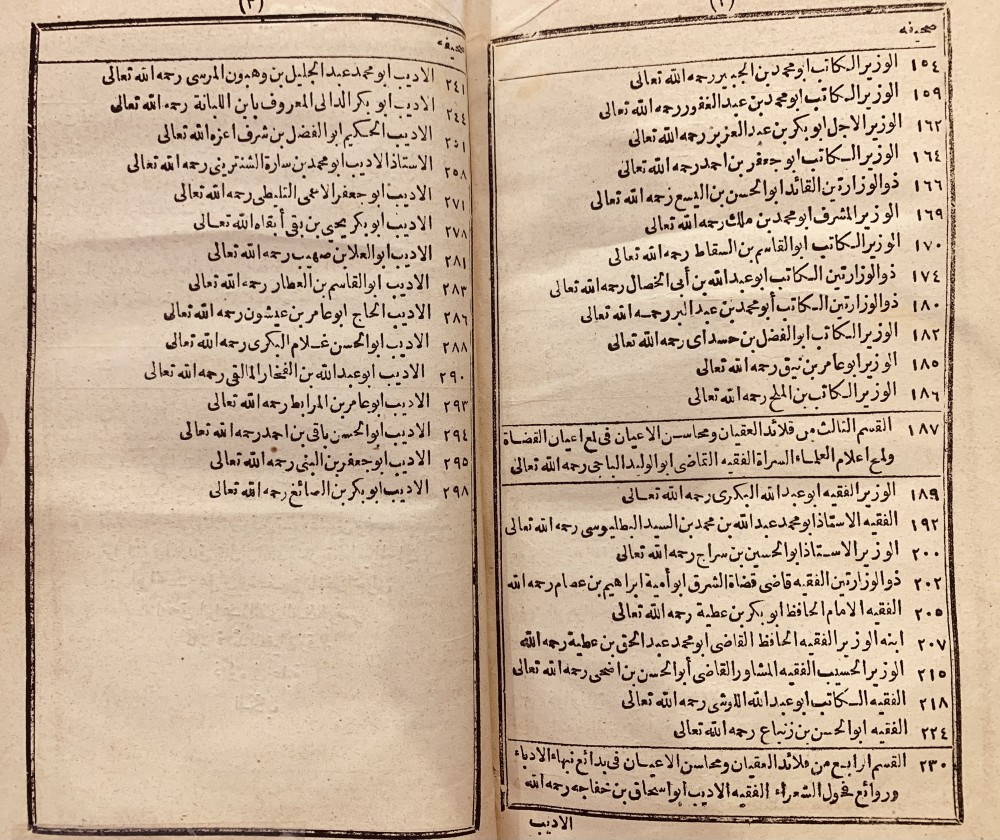 (٢)
صحيفه
١٥٤ الوزير الكاتب ابو محمد بن الجبير رحمه الله تعالى
١٥٩ الوزير الكاتب ابو محمد بن عبد الغفور رحمه الله تعالى
١٦٢ الوزير الاجل ابو بكر بن عبد العزيز رحمه الله تعالى
١٦٤ الوزير الكاتب ابو جعفر بن احمد رحمه الله تعالى
١٦٦ ذو الوزارتين القائد ابو الحسن بن اليسع رحمه الله تعالى
١٦٩ الوزير المشرف ابو محمد بن ملك رحمه الله تعالى
١٧٠ الوزير الكاتب ابو القاسم بن السقاط رحمه الله تعالى
١٧٤ ذو الوزارتين الكاتب ابو عبد الله بن أبى الخصال رحمه الله تعالى
١٨٠ ذو الوزارتين الكاتب أبو محمد بن عبد البر رحمه الله تعالى
١٨٢ الوزير الكاتب ابو الفضل بن حسداى رحمه الله تعالى
١٨٥ الوزير ابو عامر بن نيق رحمه الله تعالى
١٨٦ الوزير الكاتب بن الملح رحمه الله تعالى
١٨٧ القسم الثالث من قلائد العقيان ومحاسن الاعيان فى لمع اعيان القضاة
ولمع اعلام العلماء السراة الفقيه القاضى ابو الوليد الباجى رحمه الله تعالى
١٨٩ الوزير الفقيه ابو عبد الله البكرى رحمه الله تعالى
١٩٢ الفقيه الاستاذ ابو محمد عبد الله بن محمد بن السيد البطليوسى رحمه الله تعالى
٢٠٠ الوزير الاستاذ ابو الحسين بن سراج رحمه الله تعالى
٢٠٢ ذو الوزارتين الفقيه قاضى قضاة الشرق ابو أمية ابراهيم بن عصام رحمه الله
٢٠٥ الفقيه الامام الحافظ ابو بكر بن عطية رحمه الله تعالى
٢٠٧ ابنه الوزير الفقيه الحافظ القاضى ابو محمد عبد الحق بن عطية رحمه الله
٢١٥ الوزير الحسيب الفقيه المشاور القاضى أبو الحسن بن اضحى رحمه الله تعالى
٢١٨ الفقيه الكاتب ابو عبد الله اللوشى رحمه الله تعالى
٢٢٤ الفقيه ابو الحسن بن زنباع رحمه الله تعالى
٢٣٠ القسم الرابع من قلائد العقيان ومحاسن الاعيان فى بدائع نبهاء الادباء
وروائع فحول الشعراء الفقيه الاديب أبو اسحاق بن خفاجه رحمه الله
الاديب
(٣)
صحيفه
٢٤١ الاديب ابو محمد عبد الجليل بن وهبون المرسى رحمه الله تعالى
٢٤٤ الاديب ابو بكر الدانى المعروف بابن اللبانة رحمه الله تعالى
٢٥١ الاديب الحكيم ابو الفضل بن شرف اعزه الله تعالى
٢٥٨ الاستاذ الاديب ابو محمد بن سارة الشنترينى رحمه الله تعالى
٢٧١ الاديب ابو جعفر الاعمى التليطلى رحمه الله تعالى
٢٧٨ الاديب ابو بكر يحيى بن بقى أبقاه الله تعالى
٢٨١ الاديب ابو العلا بن صهيب رحمه الله تعالى
٢٨٣ الاديب ابو القاسم بن العطار رحمه الله تعالى
٢٨٦ الاديب الحاج ابو عامر بن عيشون رحمه الله تعالى
٢٨٨ الاديب ابو الحسن غلام البكرى رحمه الله تعالى
٢٩٠ الاديب ابو عبد الله بن الفخار المالقى رحمه الله تعالى
٢٩٣ الاديب ابو عامر بن المرابط رحمه الله تعالى
٢٩٤ الاديب ابو الحسن باقى بن احمد رحمه الله تعالى
٢٩٥ الاديب ابو جعفر بن البنى رحمه الله تعالى
٢٩٨ الاديب ابو بكر بن الصائغ رحمه الله تعالى